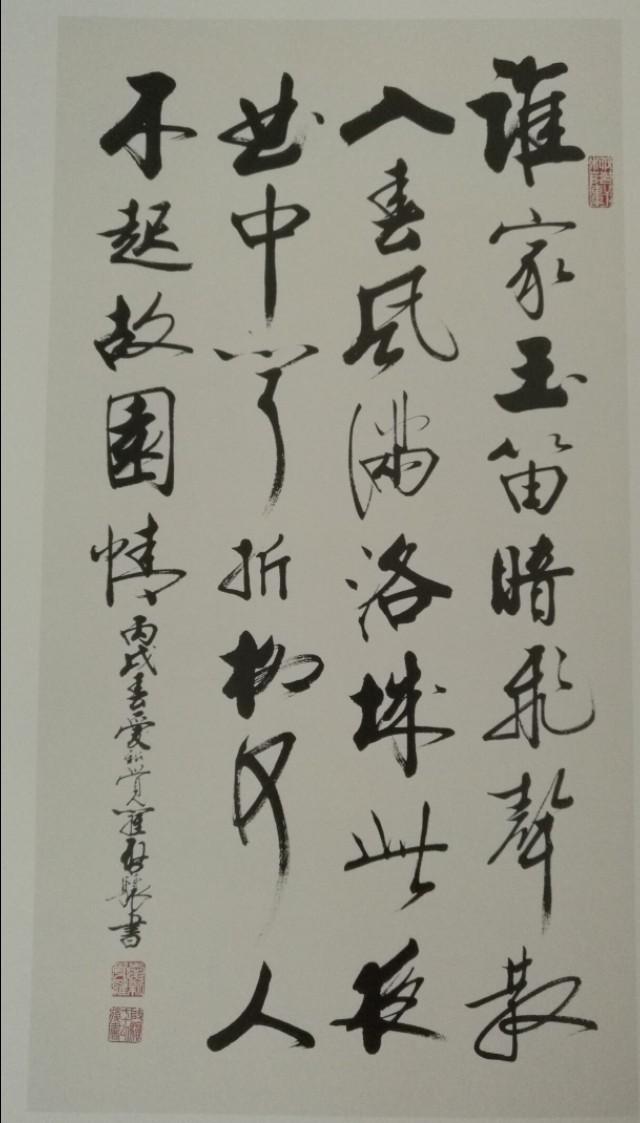 誰家玉笛暗飛聲散
入春風滿洛城此夜
曲中聞折柳何人
不起故園情
丙戌春愛新覺羅啟驤書